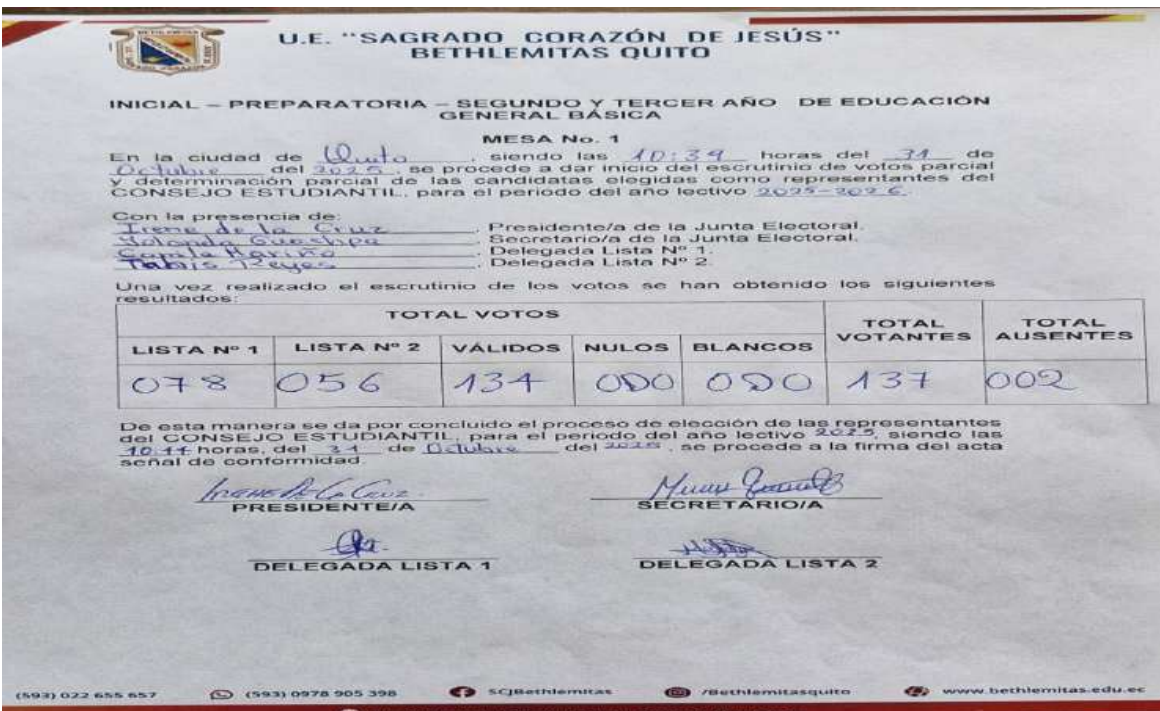 U.E. "SAGRADO CORAZÓN DE JESÚS"
BETHLEMITAS QUITO
INICIAL – PREPARATORIA – SEGUNDO Y TERCER AÑO DE EDUCACIÓN
GENERAL BÁSICA
MESA No. 1
En la ciudad de Quito, siendo las 10:39 horas del 31 de
Octubre del 2025, se procede a dar inicio del escrutinio de votos parcial
y determinación parcial de las candidatas elegidas como representantes del
CONSEJO ESTUDIANTIL, para el periodo del año lectivo 2025-2026.
Con la presencia de:
Irene de la Cruz, Presidente/a de la Junta Electoral.
Yolanda, Secretario/a de la Junta Electoral.
Mariño, Delegada Lista Nº 1.
Reyes, Delegada Lista Nº 2.
Una vez realizado el escrutinio de los votos se han obtenido los siguientes
resultados:
TOTAL VOTOS TOTAL VOTANTES TOTAL AUSENTES
LISTA Nº 1 LISTA Nº 2 VÁLIDOS NULOS BLANCOS
078 056 134 000 000 137 002
De esta manera se da por concluido el proceso de elección de las representantes
del CONSEJO ESTUDIANTIL, para el periodo del año lectivo 2025, siendo las
horas, del 31 de Octubre del 2025, se procede a la firma del acta
señal de conformidad.
Irene De La Cruz
PRESIDENTE/A SECRETARIO/A
DELEGADA LISTA 1 DELEGADA LISTA 2
(593) 022 655 657 (593) 0978 905 398 SCJBethlemitas /Bethlemitasquito www.bethlemitas.edu.ec